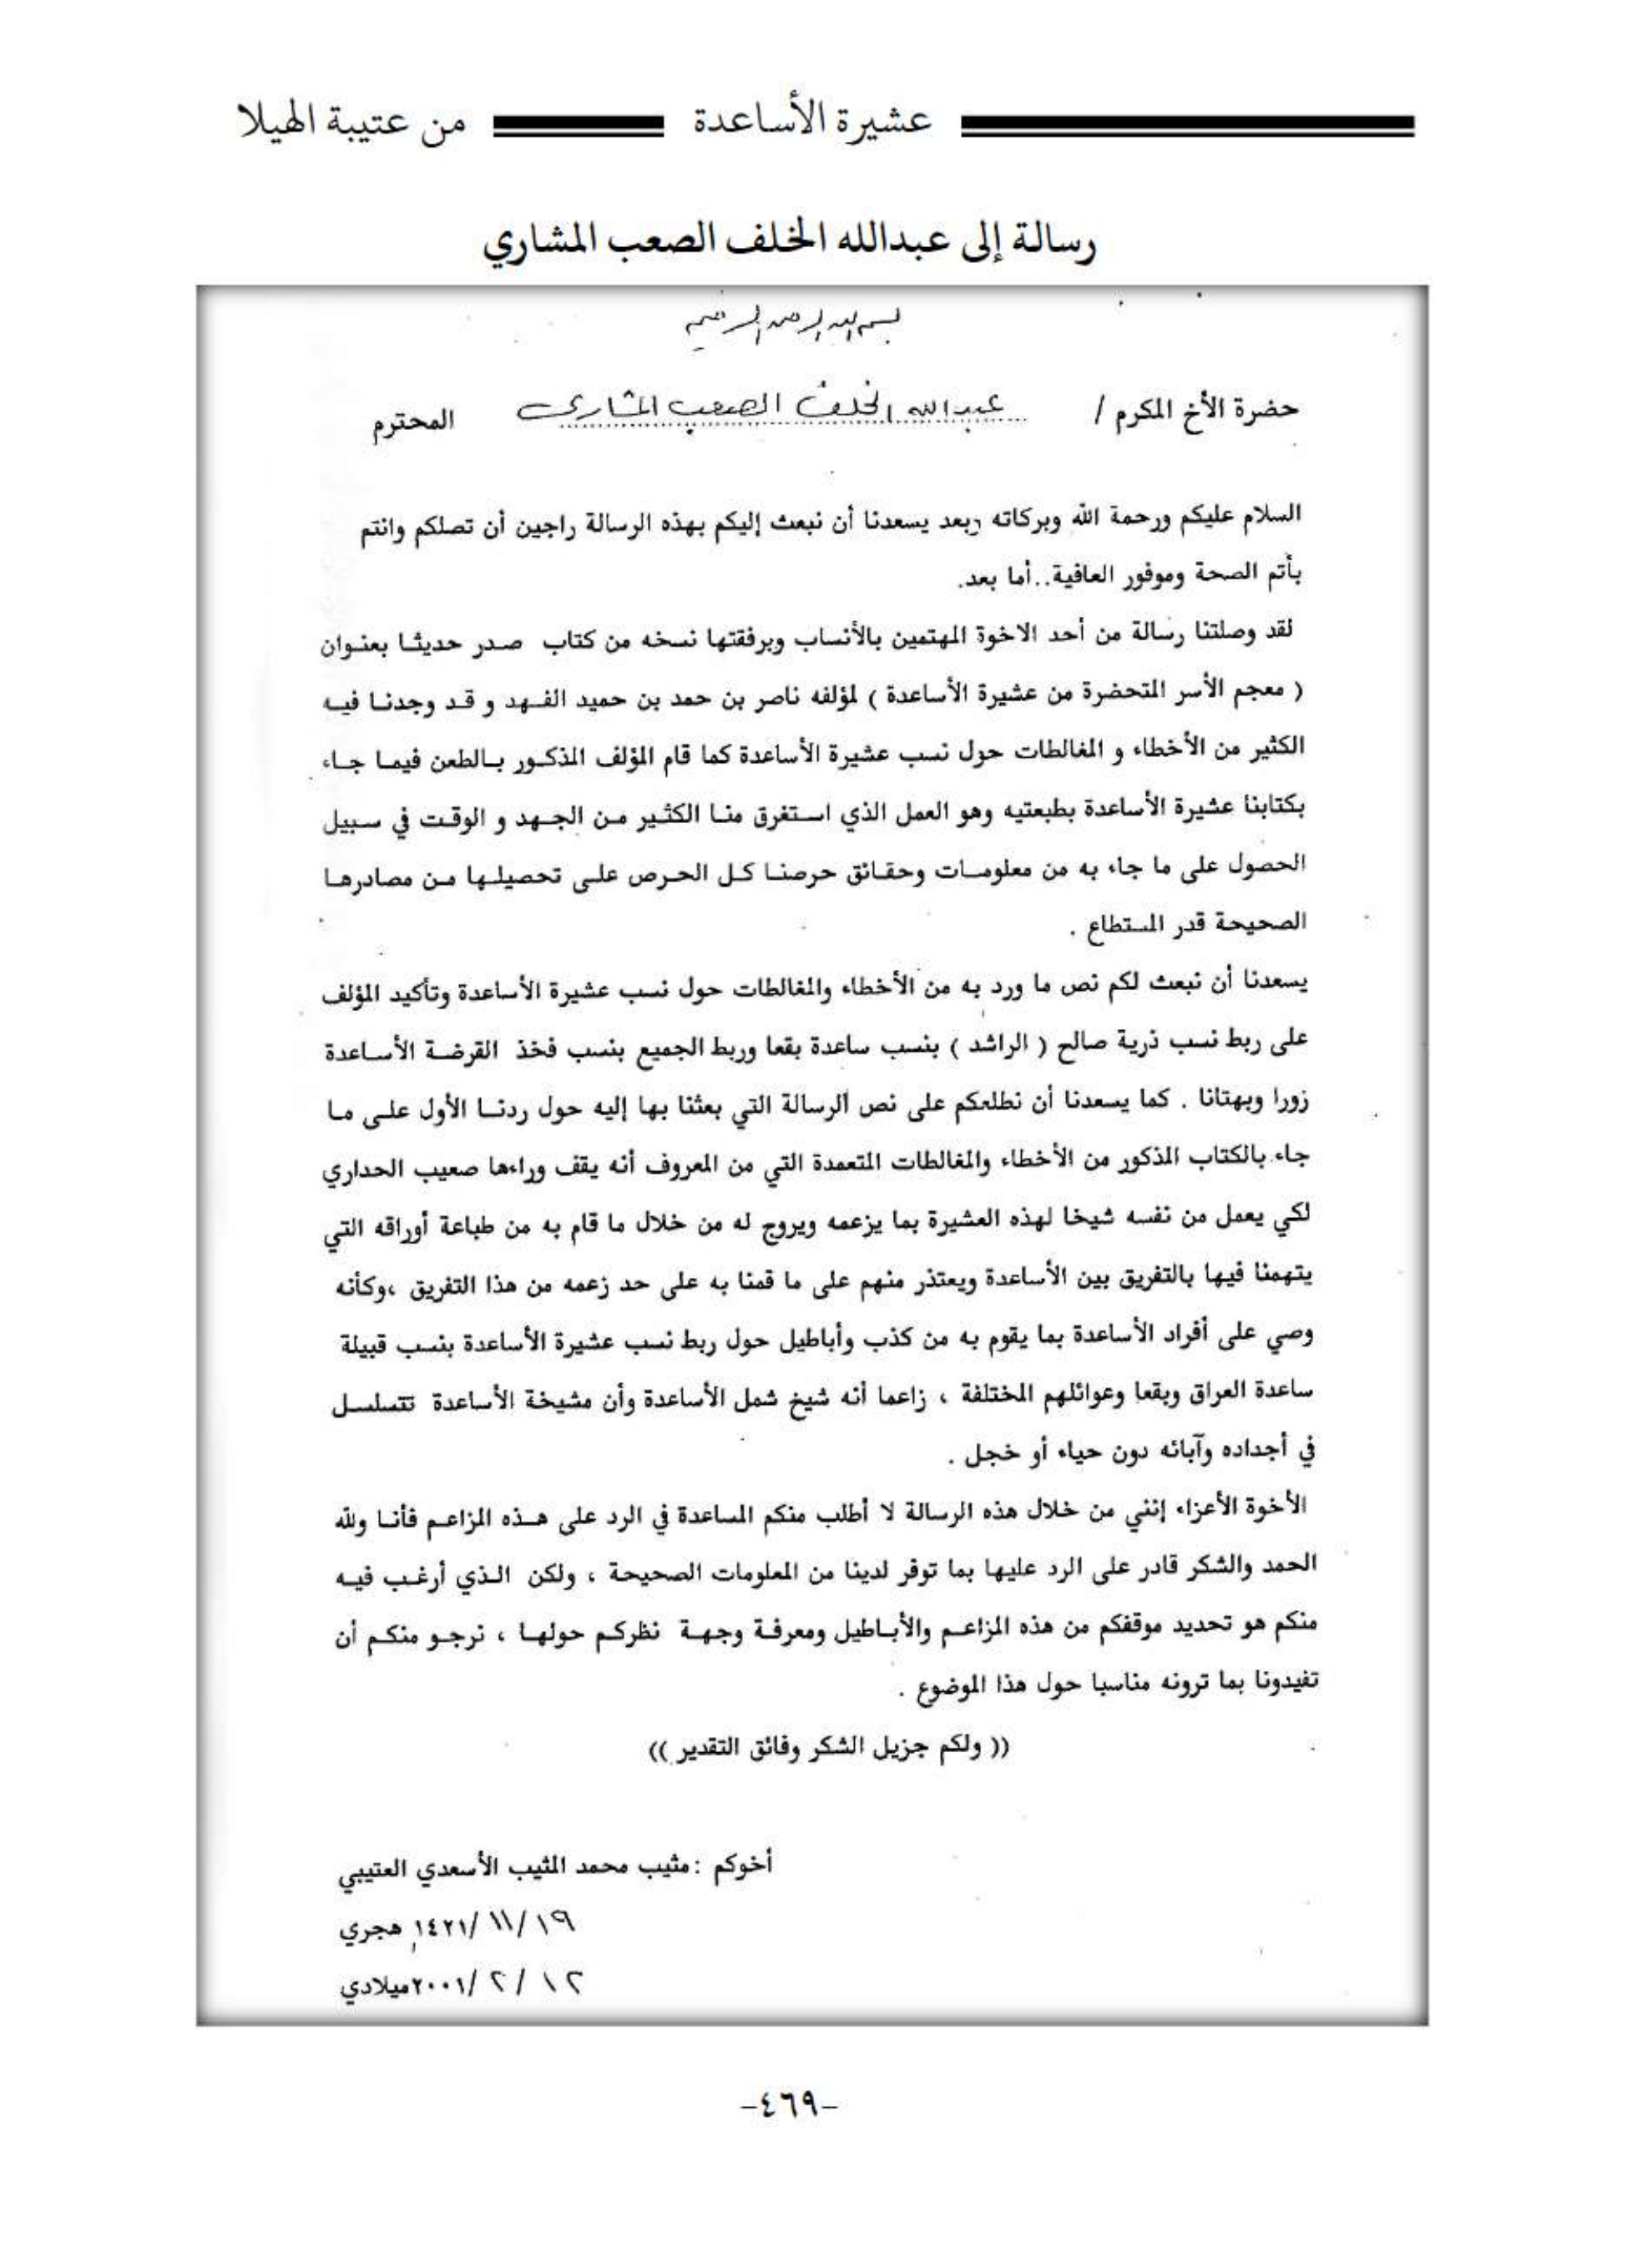 عشيرة الأساعدة من عتيبة الهيلا
رسالة إلى عبدالله الخلف الصعب المشاري
بسم الله الرحمن الرحيم
حضرة الأخ المكرم / عبدالله الخلف الصعب المشاري المحترم
السلام عليكم ورحمة الله وبركاته وبعد يسعدنا أن نبعث إليكم بهذه الرسالة راجين أن تصلكم وانتم
بأتم الصحة وموفور العافية..أما بعد.
لقد وصلتنا رسالة من أحد الاخوة المهتمين بالأنساب وبرفقتها نسخه من كتاب صدر حديثا بعنوان
( معجم الأسر المتحضرة من عشيرة الأساعدة ) لمؤلفه ناصر بن حمد بن حميد الفهد و قد وجدنا فيه
الكثير من الأخطاء و المغالطات حول نسب عشيرة الأساعدة كما قام المؤلف المذكور بالطعن فيما جاء
بكتابنا عشيرة الأساعدة بطبعتيه وهو العمل الذي استغرق منا الكثير من الجهد و الوقت في سبيل
الحصول على ما جاء به من معلومات وحقائق حرصنا كل الحرص على تحصيلها من مصادرها
الصحيحة قدر المستطاع .
يسعدنا أن نبعث لكم نص ما ورد به من الأخطاء والمغالطات حول نسب عشيرة الأساعدة وتأكيد المؤلف
على ربط نسب ذرية صالح ( الراشد ) بنسب ساعدة بقعا وربط الجميع بنسب فخذ القرضة الأساعدة
زورا وبهتانا . كما يسعدنا أن نطلعكم على نص الرسالة التي بعثنا بها إليه حول ردنا الأول على ما
جاء بالكتاب المذكور من الأخطاء والمغالطات المتعمدة التي من المعروف أنه يقف وراءها صعيب الحداري
لكي يعمل من نفسه شيخا لهذه العشيرة بما يزعمه ويروج له من خلال ما قام به من طباعة أوراقه التي
يتهمنا فيها بالتفريق بين الأساعدة ويعتذر منهم على ما قمنا به على حد زعمه من هذا التفريق ،وكأنه
وصي على أفراد الأساعدة بما يقوم به من كذب وأباطيل حول ربط نسب عشيرة الأساعدة بنسب قبيلة
ساعدة العراق وبقعا وعوائلهم المختلفة ، زاعما أنه شيخ شمل الأساعدة وأن مشيخة الأساعدة تتسلسل
في أجداده وآبائه دون حياء أو خجل .
الأخوة الأعزاء إنني من خلال هذه الرسالة لا أطلب منكم المساعدة في الرد على هذه المزاعم فأنا ولله
الحمد والشكر قادر على الرد عليها بما توفر لدينا من المعلومات الصحيحة ، ولكن الذي أرغب فيه
منكم هو تحديد موقفكم من هذه المزاعم والأباطيل ومعرفة وجهة نظركم حولها ، نرجو منكم أن
تفيدونا بما ترونه مناسبا حول هذا الموضوع .
(( ولكم جزيل الشكر وفائق التقدير ))
أخوكم : مثيب محمد المثيب الأسعدي العتيبي
١٩/ ١١/ ١٤٢١ هجري
١٢/ ٢/ ٢٠٠١ميلادي
-٤٦٩-